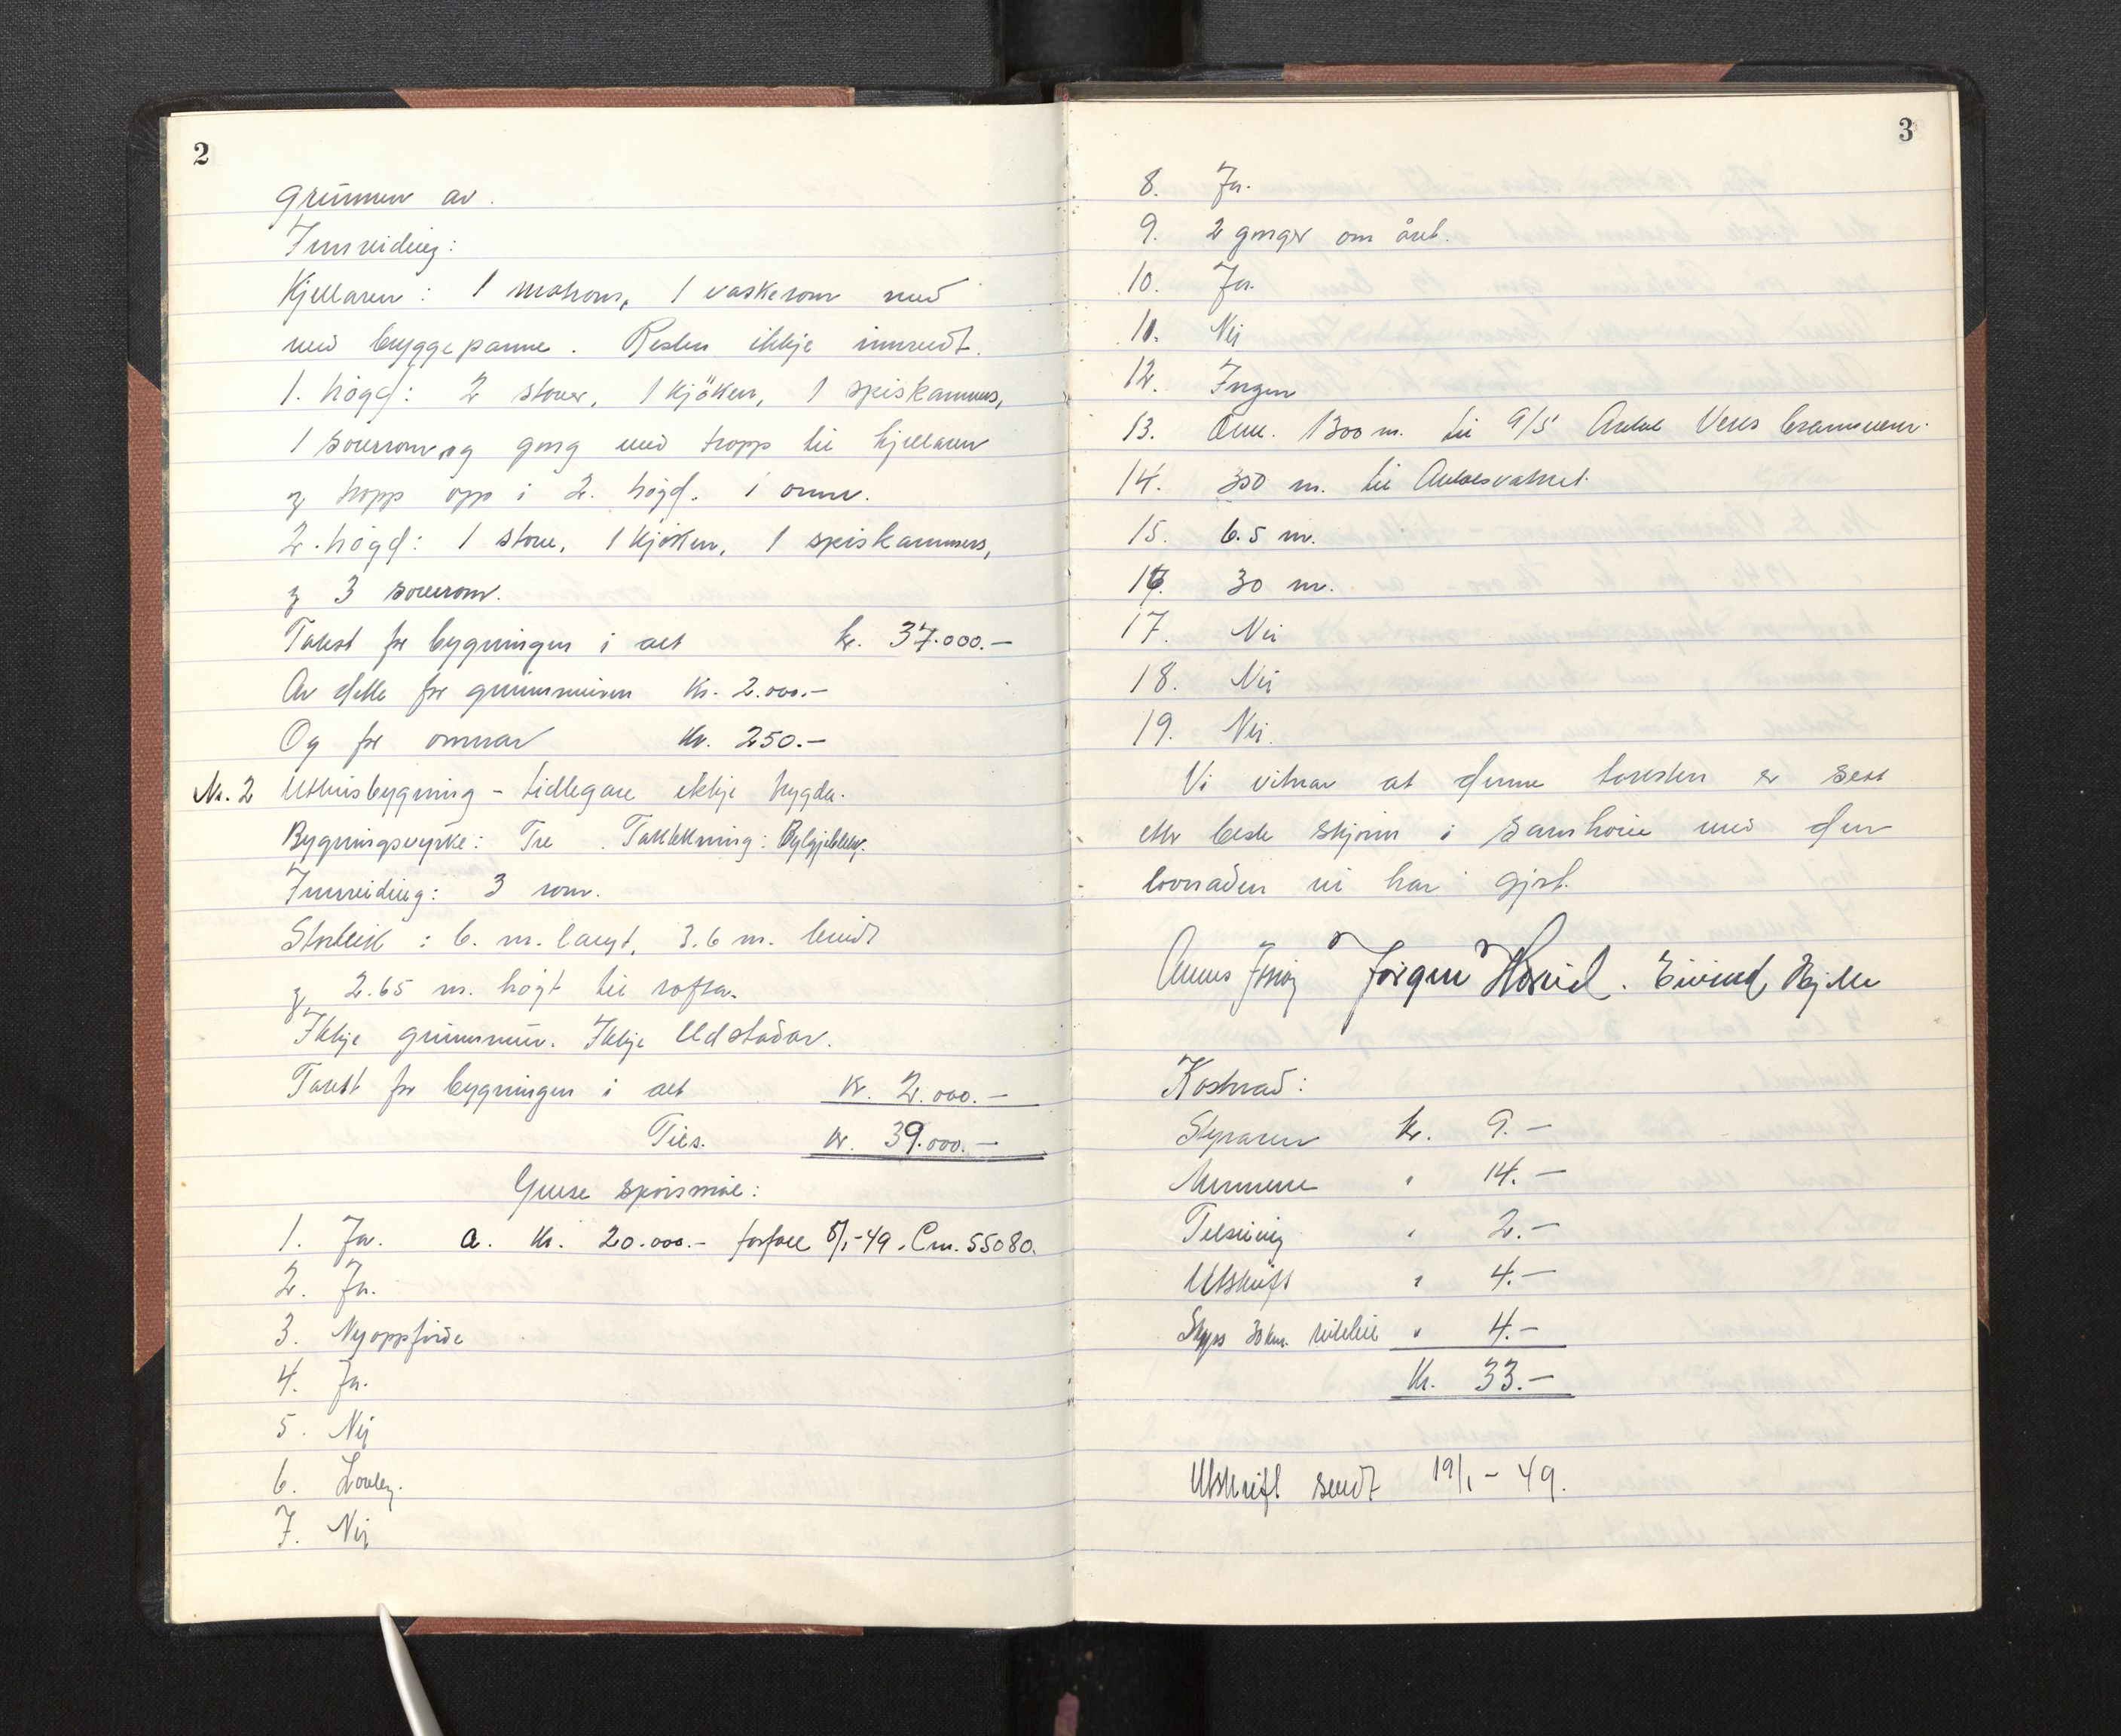 2
grunnen av.
Innreiding:
Kjellaren: 1 matrom, 1 vaskerom med
med bryggepanne. Resten ikkje innreidt.
1. høgd: 2 stover, 1 kjöken, 1 spiskammers,
1 soverom og gong med tropp til kjellaren
og tropp opp i 2. høgd. 1 omn.
2. høgd: 1 stove, 1 kjöken, 1 spiskammers,
og 3 soverom.
Takst for bygningen i alt kr. 37.000.-
Av dette for grunnmuren kr. 2.000.-
Og for omnar kr. 250.-
Nr. 2 Uthusbygning - tidlegare ikkje trygda.
Bygningsvyrke: Tre. Taktekning: Bylgjeblekk.
Innreiding: 3 rom.
Storleik: 6. m. langt, 3.6 m. breidt
og 2.65 m. högt til rafta.
Ikkje grunnmur. Ikkje Eldstadar.
Takst for bygningen i alt kr. 2.000.-
Tils. kr. 39.000.-
Ymse spörsmål:
1. Ja. a. kr. 20.000.- forfall 5/1-49. Cm. 55080.
2. Ja.
3. Nyoppförde
4. Ja.
5. Nei
6. Lovleg.
7. Nei
3
8. Ja.
9. 2 gonger om året.
10. Ja.
11. Nei
12. Ingen
13. Om. 1300 m. til A/S Ardal Verks brannvern.
14. 350 m. til Ardalsvatnet.
15. 6.5 m.
16. 30 m.
17. Nei
18. Nei
19. Nei.
Vi vitnar at denne taksten er sett
etter beste skjönn i samhøve med den
lovnaden vi har gjort.
Jörgen Hovid. Eivind Hjelle
Kostnad:
Styraren kr. 9.-
Mennene " 14.-
Tilseiing " 2.-
Utskrift " 4.-
Skyss 30 km. " 4.-
Kr. 33.-
Utskrift sendt 19/1-49.